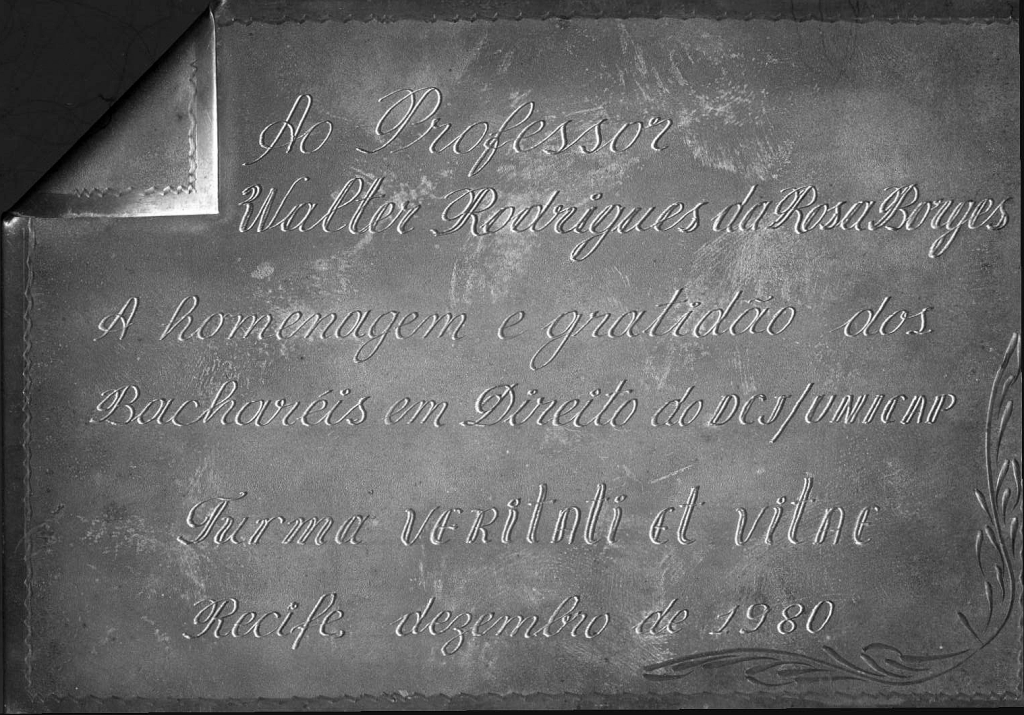 Ao Professor
Walter Rodrigues da Rosa Borges
A homenagem e gratidão dos
Bacharéis em Direito do DCJ/UNICAP
Turma VERitAti Et VitAE
Recife, dezembro de 1980